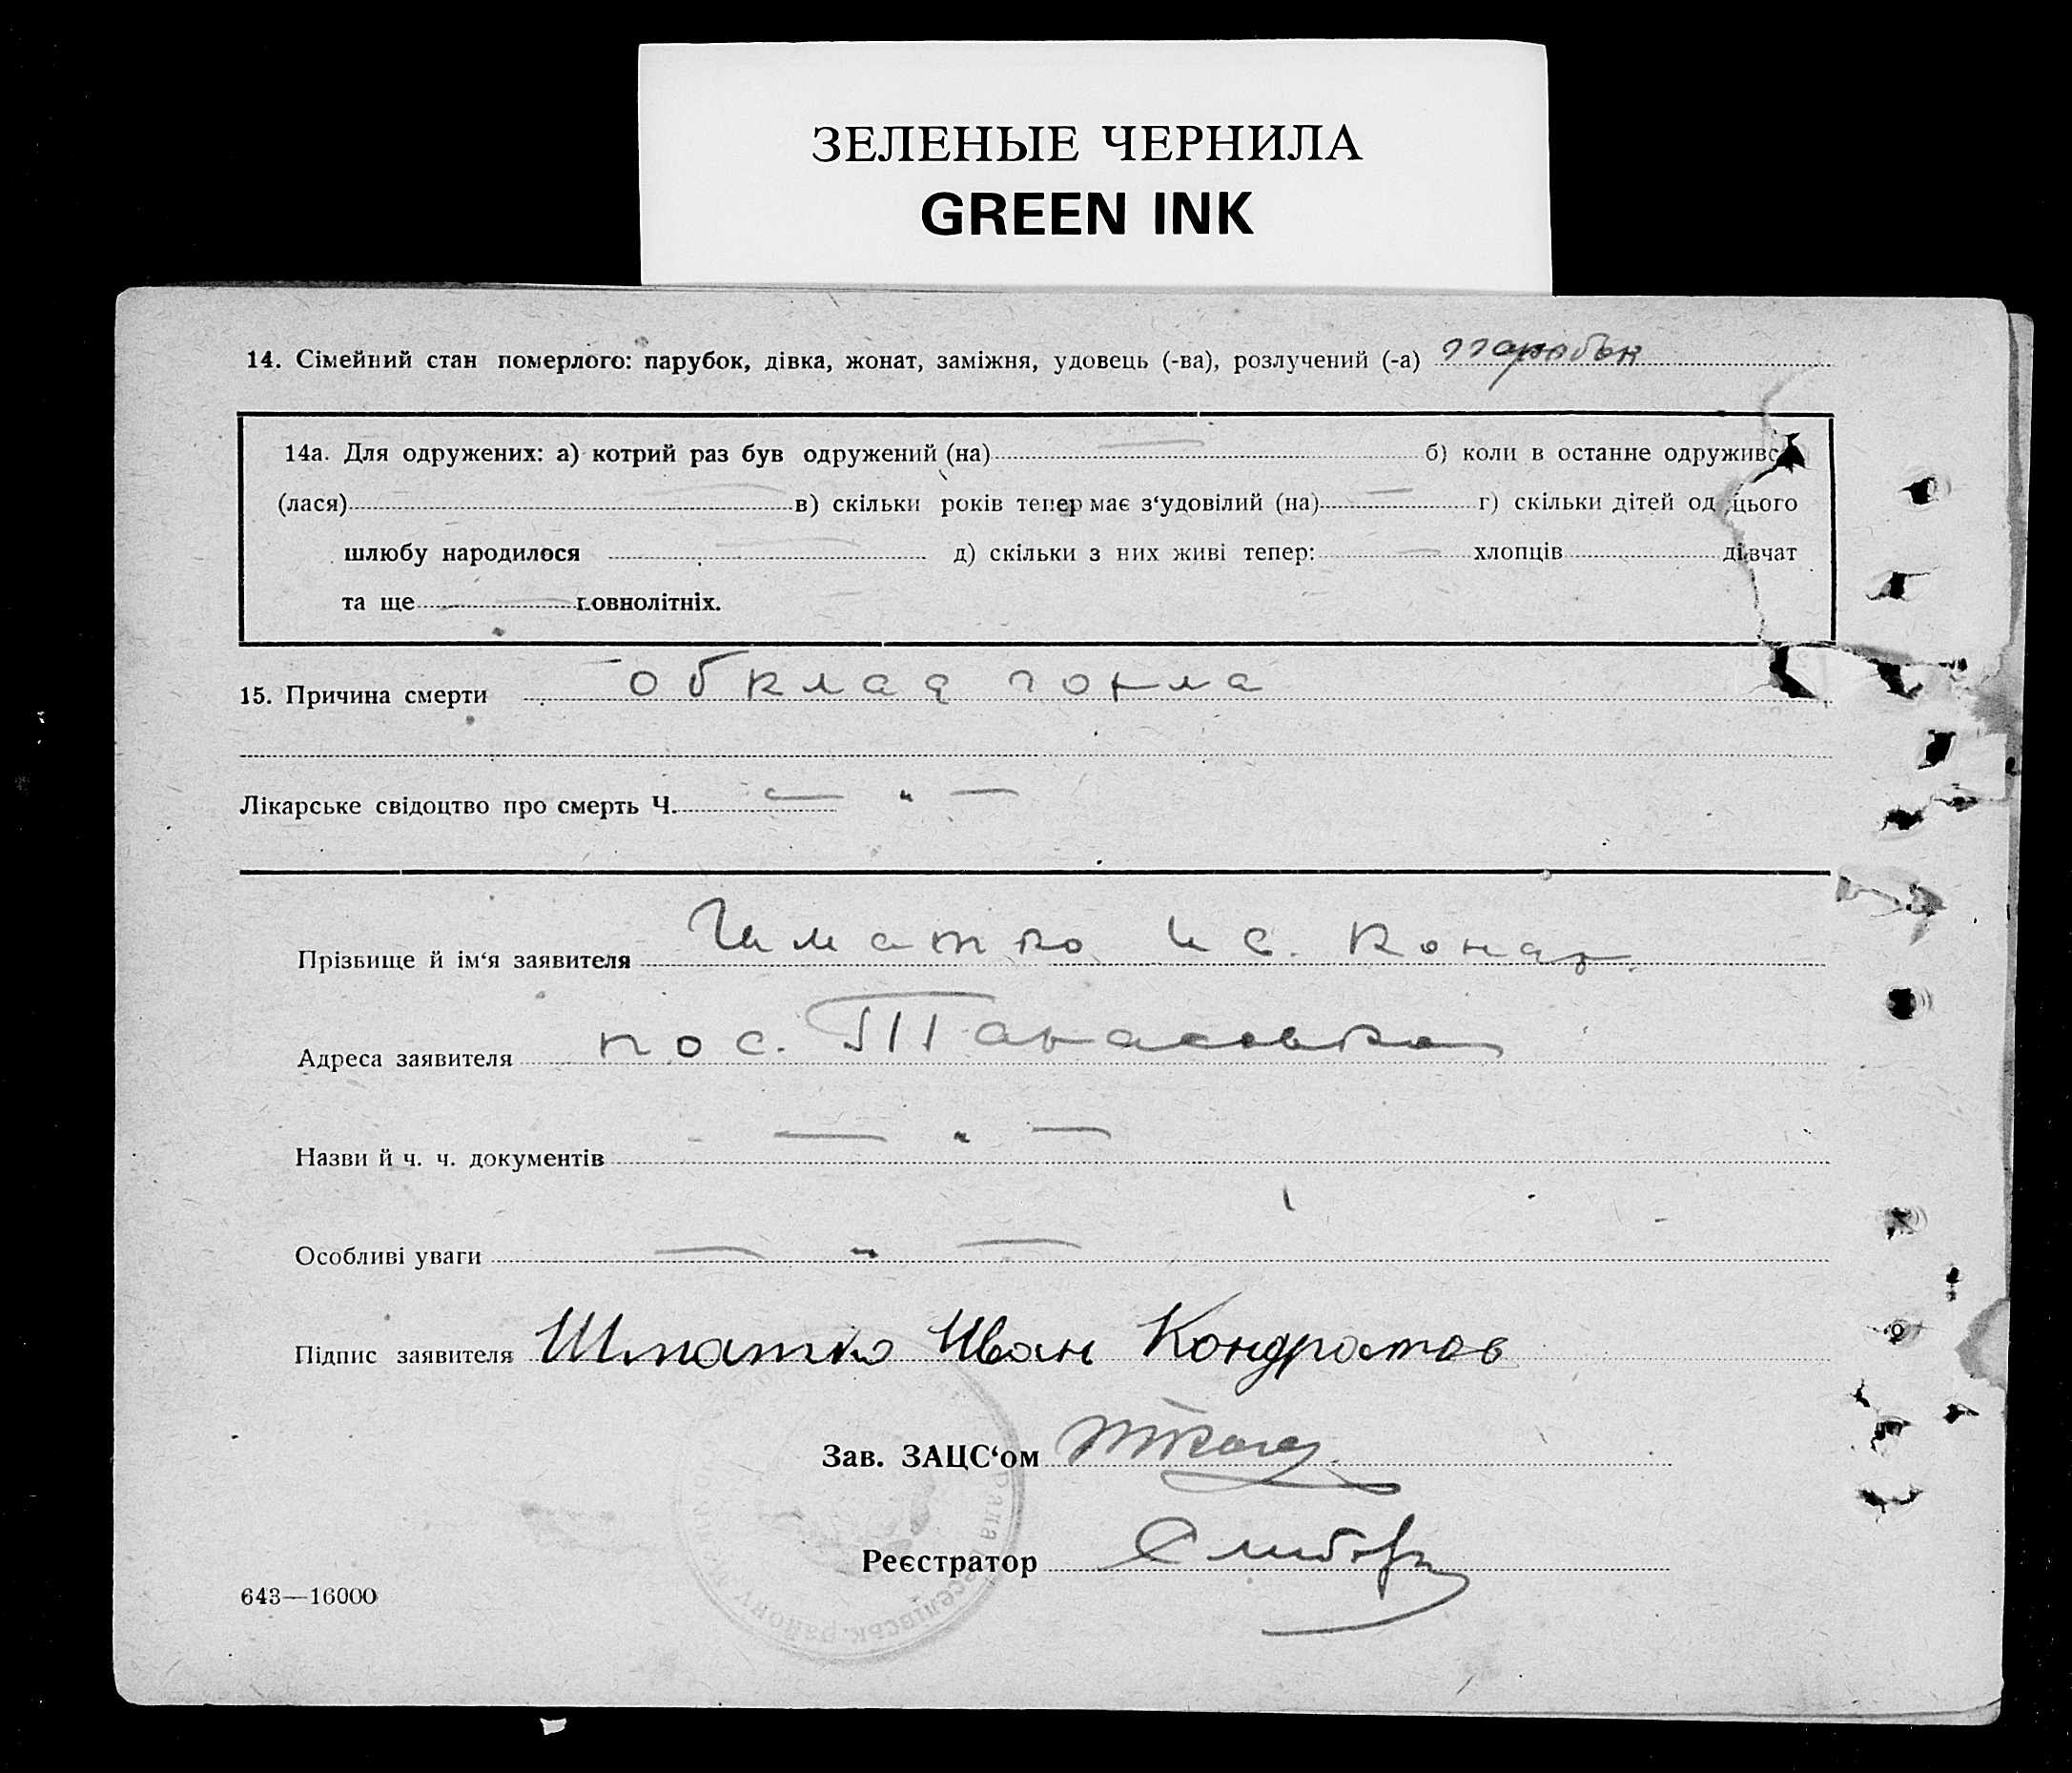 ЗЕЛЕНЫЕ ЧЕРНИЛА
GREEN INK
14. Сімейний стан померлого: парубок, дівка, жонат, заміжня, удовець (-ва), розлучений (-а) парубок
14а. Для одружених: а) котрий раз був одружений (на) — б) коли в останнє одруживс
(лася) — в) скільки років тепер має з‘удовілий (на) — г) скільки дітей од цього
шлюбу народилося — д) скільки з них живі тепер: — хлопців дівчат
та ще — повнолітніх.
15. Причина смерти обклад горла
Лікарське свідоцтво про смерть Ч. — " —
Прізвище й ім‘я заявителя Шматко Ив. Конд.
Адреса заявителя пос. Тарасовка
Назви й ч. ч. документів — " —
Особливі уваги — " —
Підпис заявителя Шматко Иван Кондратов
Зав. ЗАЦС‘ом
Реєстратор
643—16000